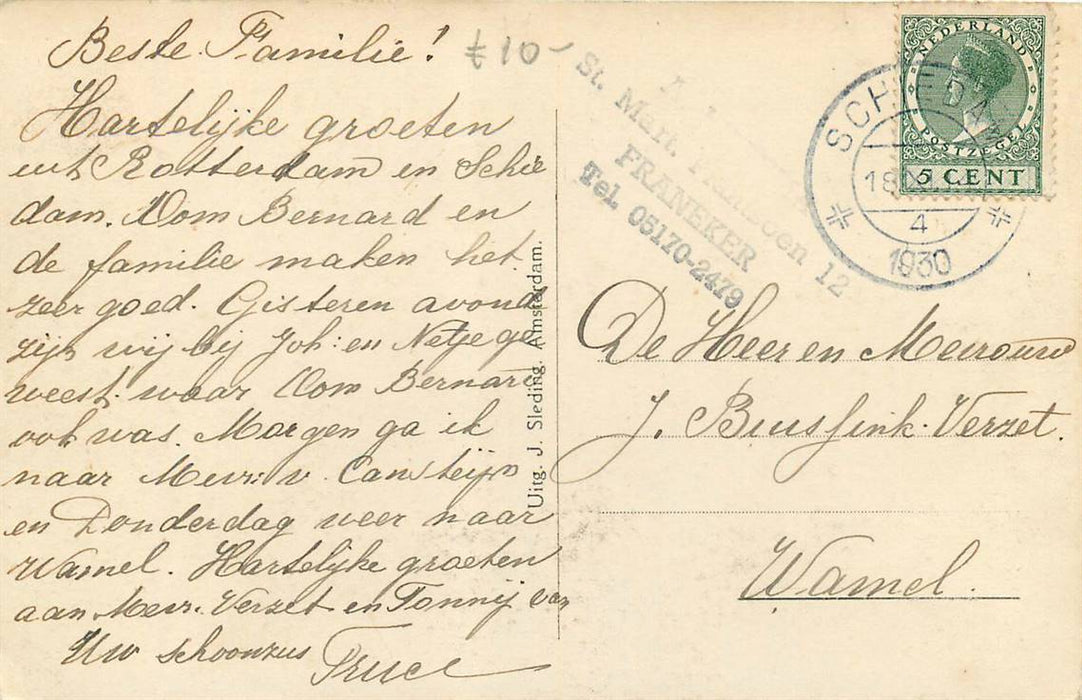 Beste Familie!
Hartelijke groeten
uit Rotterdam en Schie
dam. Oom Bernard en
de familie maken het
zeer goed. Gisteren avond
zijn wij bij Joh: en Netje ge
weest. waar Oom Bernard
ook was. Morgen ga ik
naar Mevr: v. Cansteijn
en Donderdag weer naar
Wamel. Hartelijke groeten
aan Mevr. Verzet en Tonnij van
Uw schoonzus
Truce
£ 10-
St. Mart. 12
FRANEKER
Tel. 05170-2479
NEDERLAND
POSTZEGEL
5 CENT
SCHIEDAM
18
4
1930
Uitg. J. Sleding. Amsterdam.
De Heer en Mevrouw
J. Buusfink-Verzet.
Wamel.